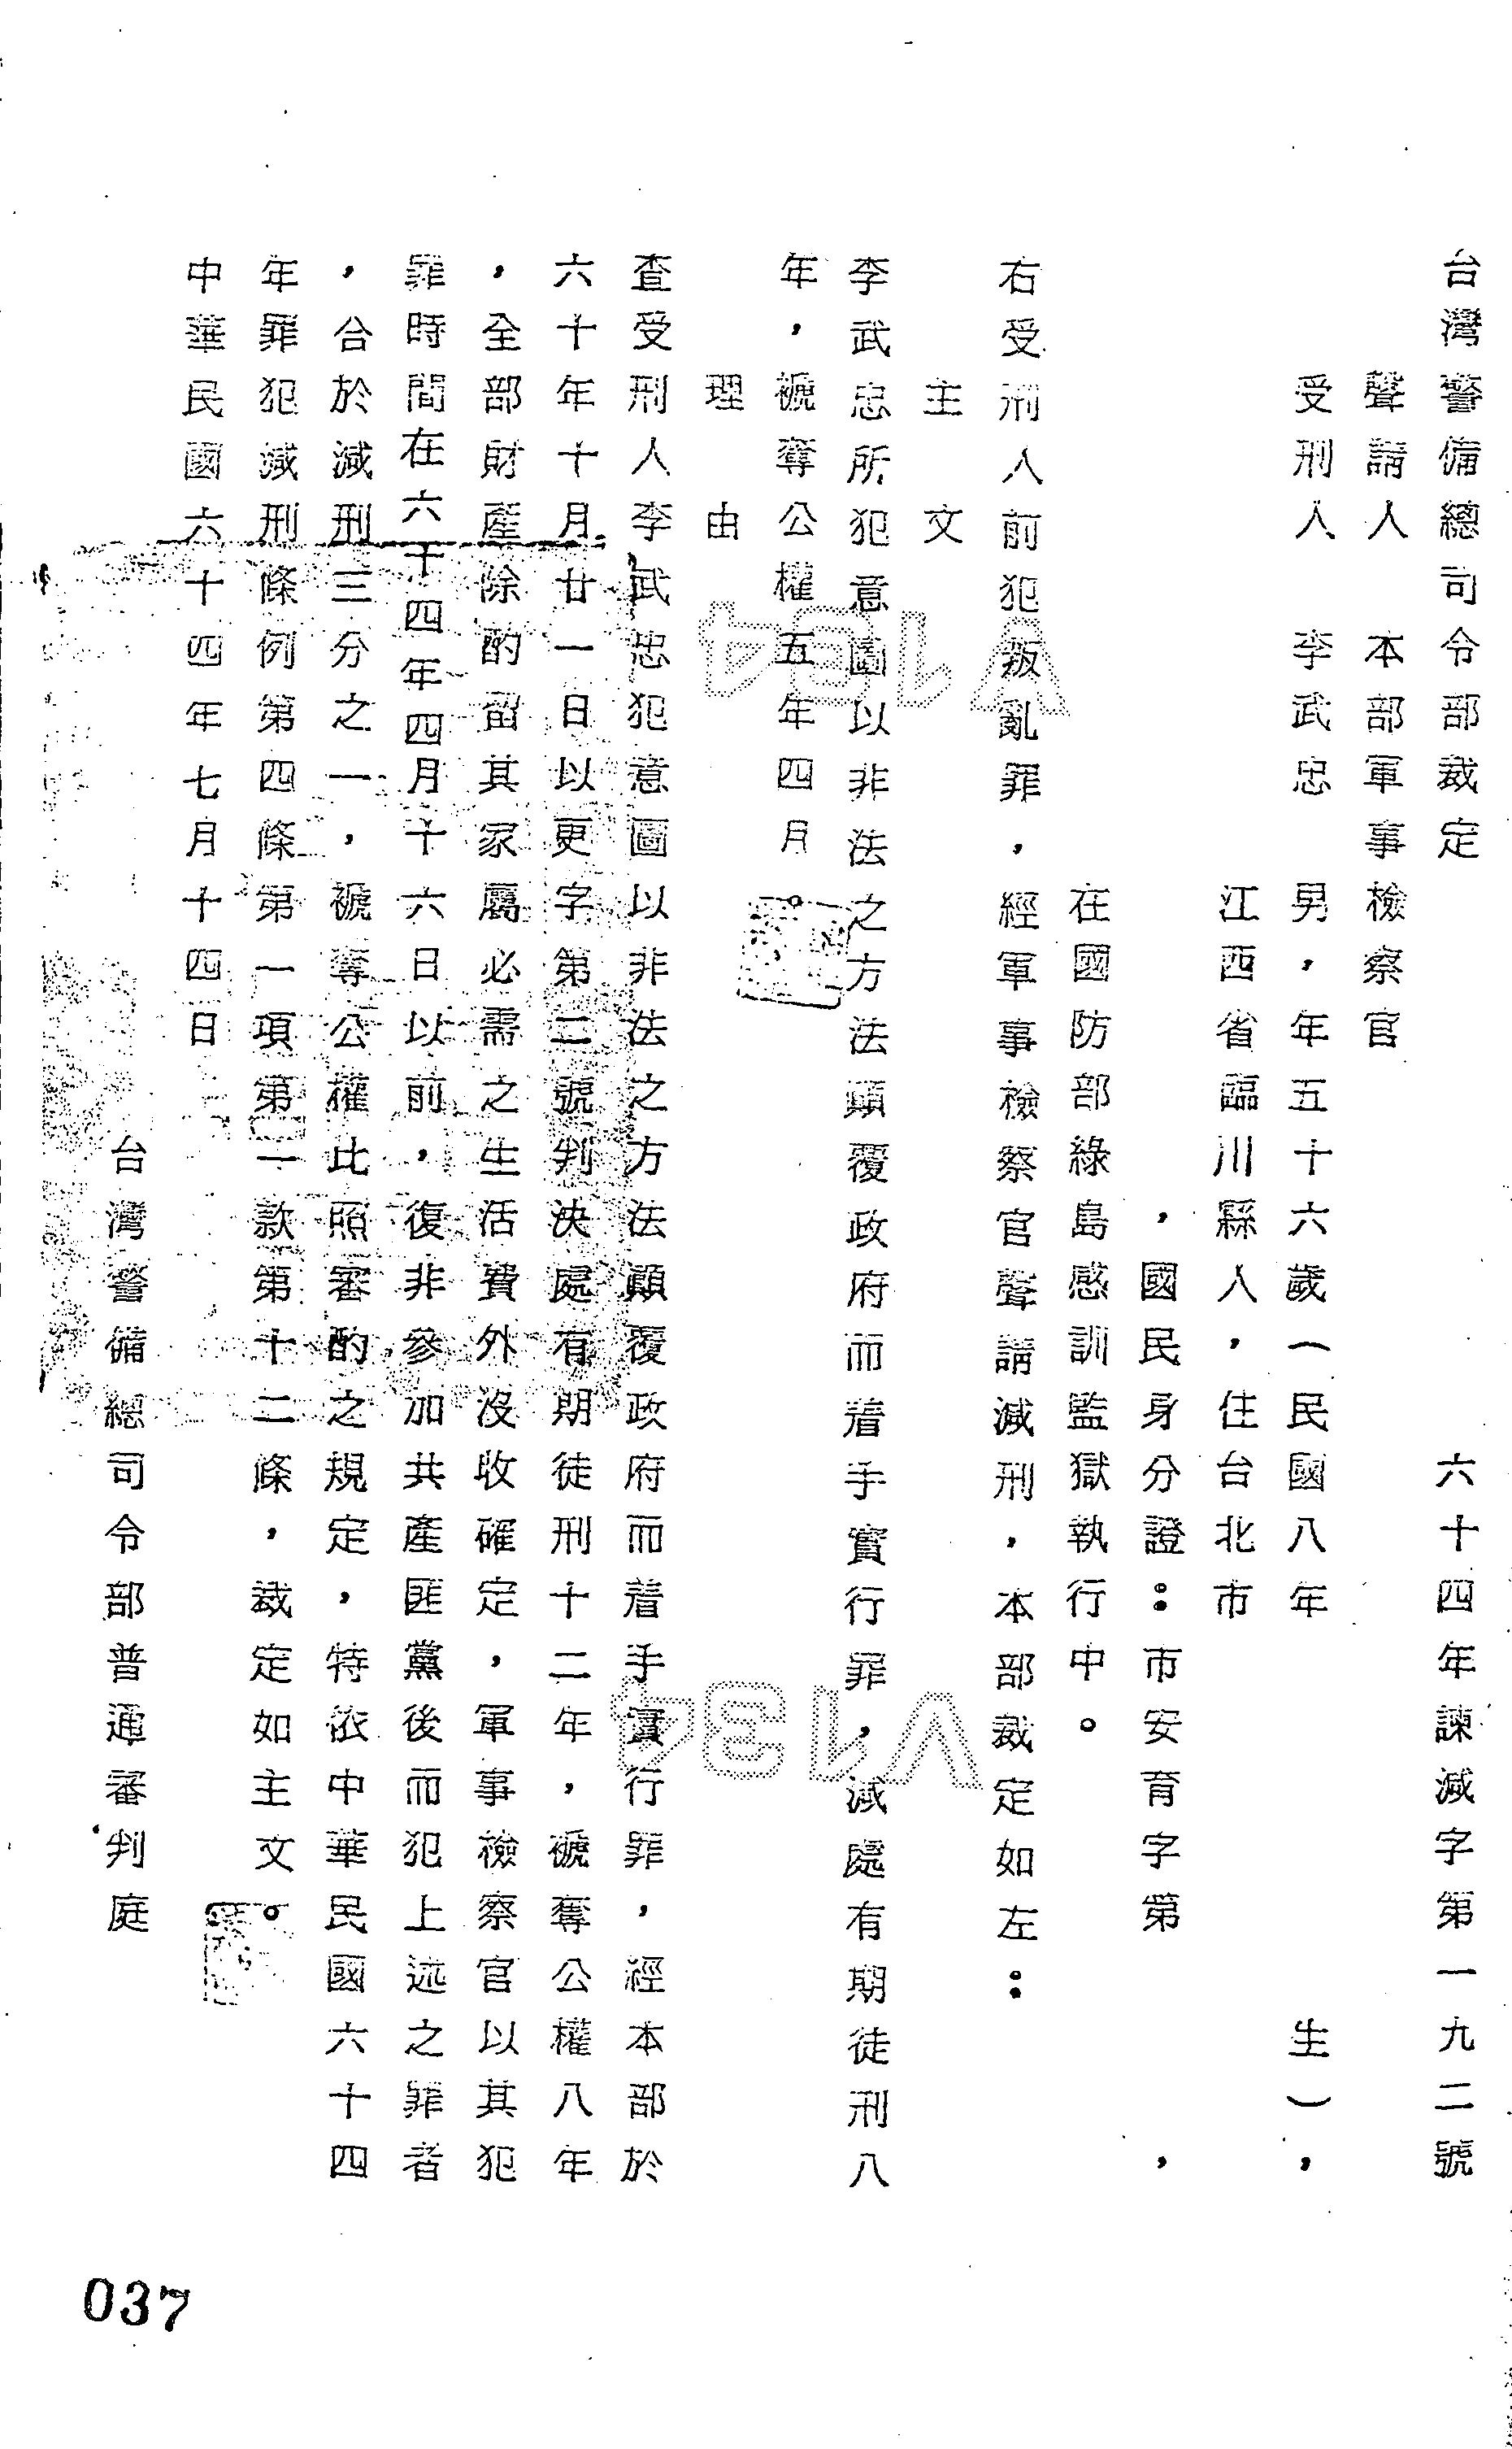 台灣警備總司令部裁定　六十四年諫減字第一九二號
聲請人　本部軍事檢察官
受刑人　李武忠　男，年五十六歲（民國八年　生），
江西省臨川縣人，住台北市
，國民身分證：市安育字第　，
在國防部綠島感訓監獄執行中。
右受刑人前犯叛亂罪，經軍事檢察官聲請減刑，本部裁定如左：
主　文
李武忠所犯意圖以非法之方法顛覆政府而着手實行罪，減處有期徒刑八
年，褫奪公權五年四月。
理　由
查受刑人李武忠犯意圖以非法之方法顛覆政府而着手實行罪，經本部於
六十年十月廿一日以更字第二號判決處有期徒刑十二年，褫奪公權八年
，全部財產除酌留其家屬必需之生活費外沒收確定，軍事檢察官以其犯
罪時間在六十四年四月十六日以前，復非參加共產匪黨後而犯上述之罪者
，合於減刑三分之一，褫奪公權比照審酌之規定，特依中華民國六十四
年罪犯減刑條例第四條第一項第一款第十二條，裁定如主文。
中華民國六十四年七月十四日
台灣警備總司令部普通審判庭
037
V134
V134